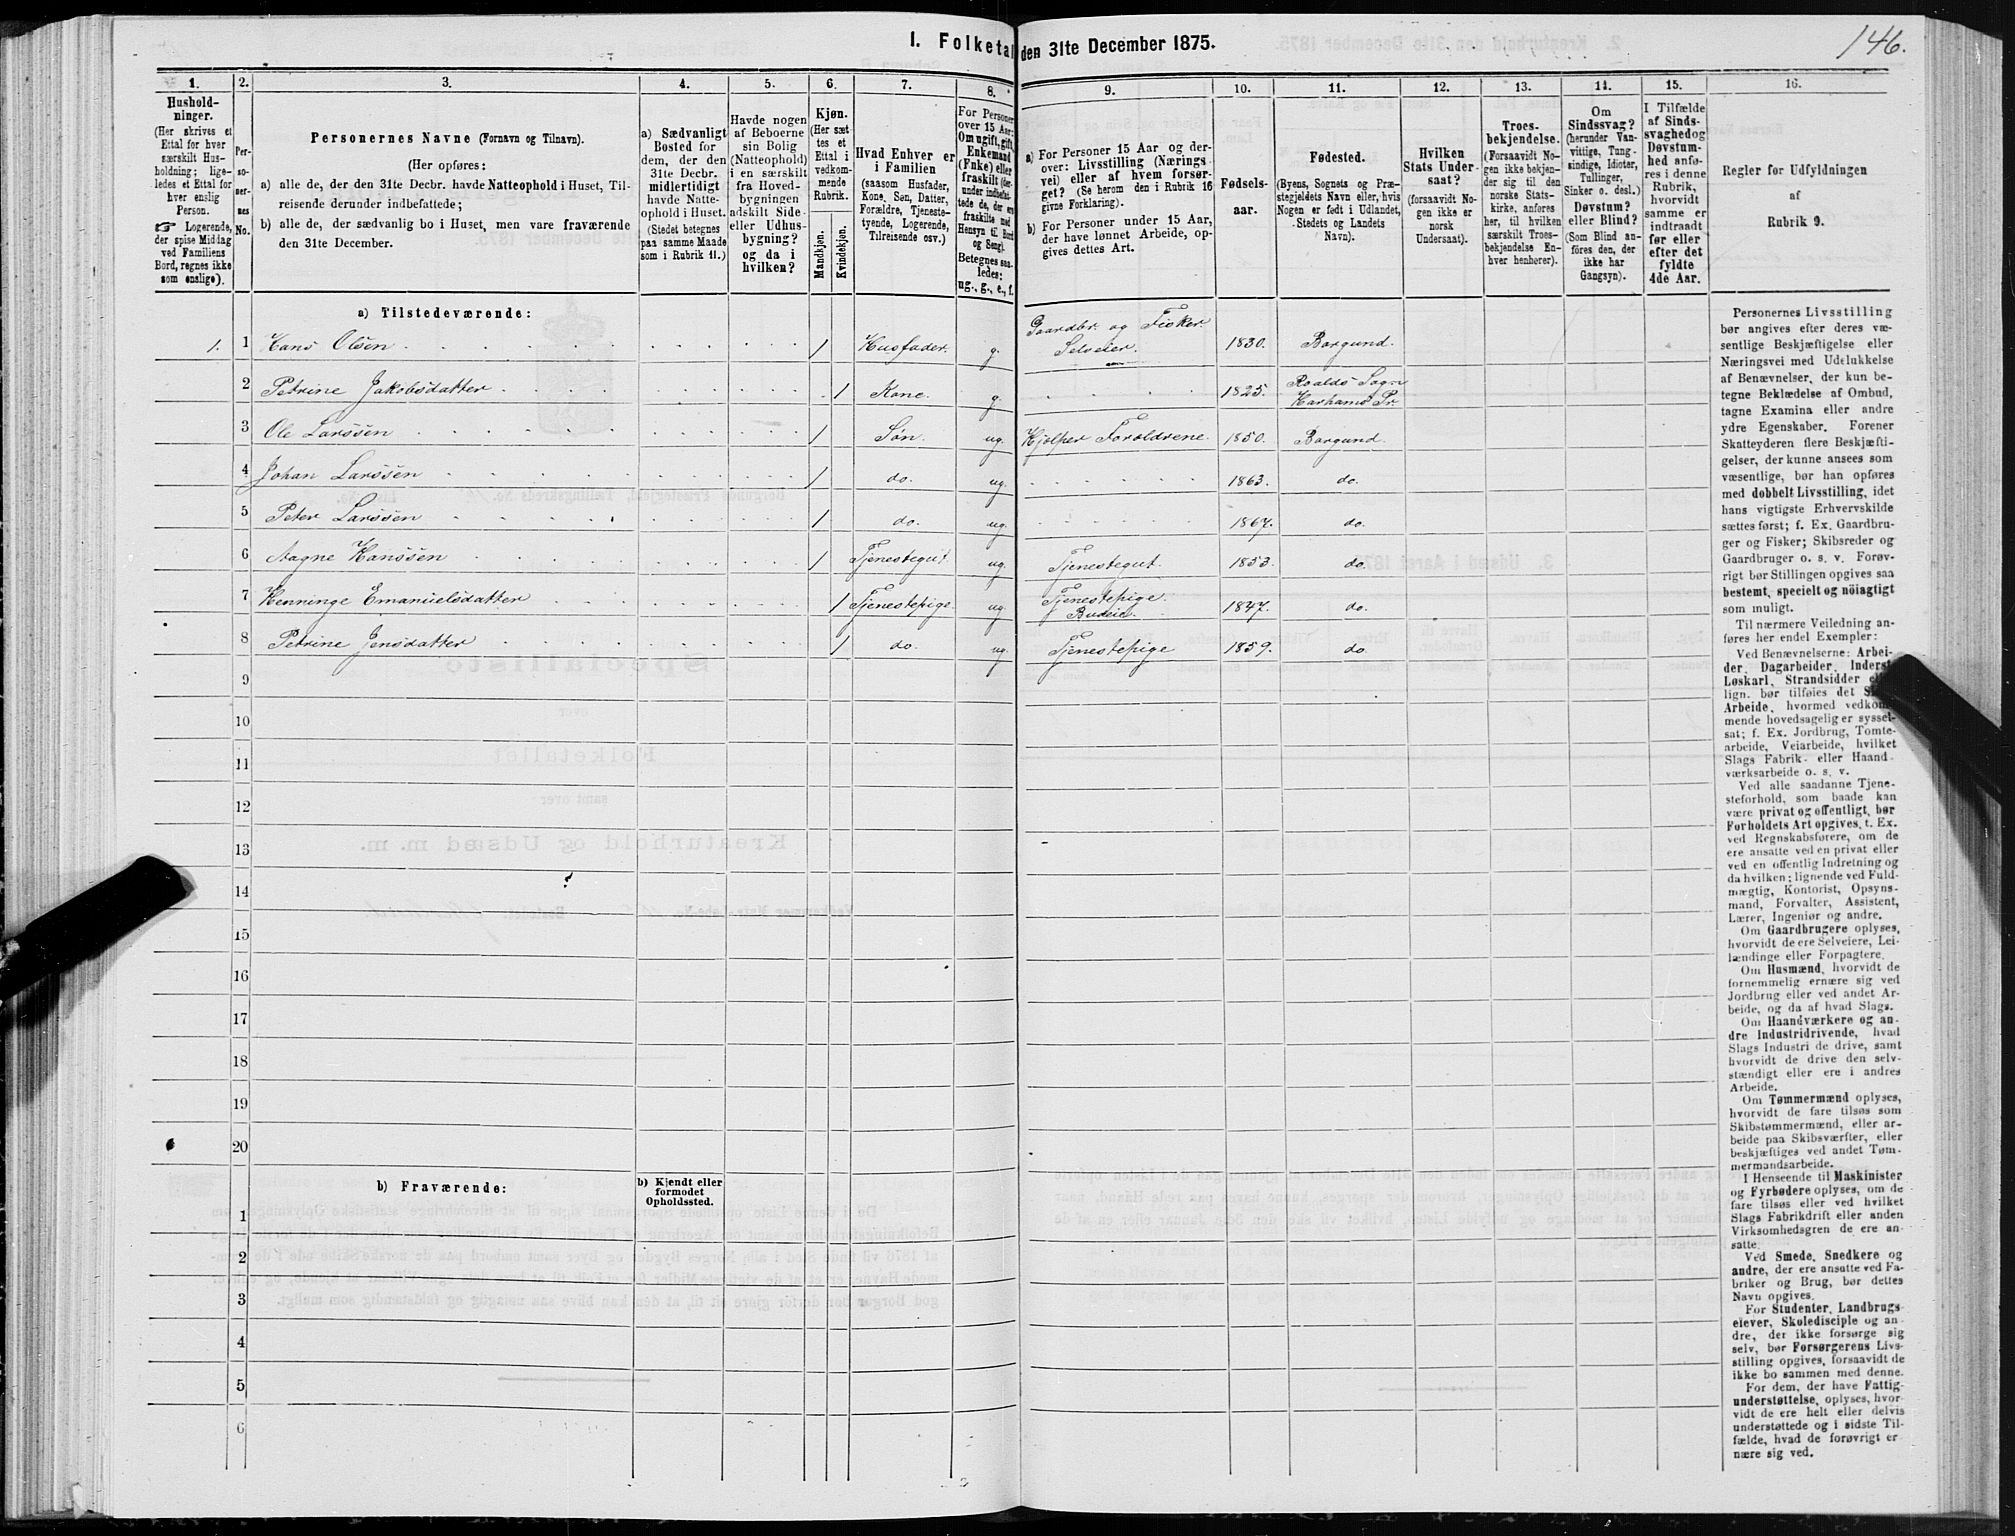 146.
I. Folketal den 31te December 1875.
1. 2. 3. 4. 5. 6. 7. 8. 9. 10. 11. 12. 13. 14. 15. 16.
Hushold-
ninger.
(Her skrives et
Ettal for hver
særskilt Hus-
holdning; lige-
ledes et Ettal for
hver enslig
Person.
☞ Logerende,
der spise Middag
ved Familiens
Bord, regnes ikke
som enslige).
Per-
so-
ner-
nes
No.
Personernes Navne (Fornavn og Tilnavn).
(Her opføres:
a) alle de, der den 31te Decbr. havde Natteophold i Huset, Til-
reisende derunder indbefattede;
b) alle de, der sædvanlig bo i Huset, men vare fraværende
den 31te December.
a) Sædvanligt
Bosted for
dem, der den
31te Decbr.
midlertidigt
havde Natte-
ophold i Huset.
(Stedet betegnes
paa samme Maade
som i Rubrik 11.)
Havde nogen
af Beboerne
sin Bolig
(Natteophold)
i en særskilt
fra Hoved-
bygningen
adskilt Side-
eller Udhus-
bygning?
og da i
hvilken?
Kjøn.
(Her sæt
tes et
Ettal i
vedkom-
mende
Rubrik.
Mandkjøn.
Kvindekjøn.
Hvad Enhver er
i Familien
(saasom Husfader,
Kone, Søn, Datter,
Forældre, Tjeneste-
tyende, Logerende,
Tilreisende osv.)
For Personer
over 15 Aar:
Om ugift, gift,
Enkemand
(Enke) eller
fraskilt (der-
under indbefat-
tede de, der ere
fraskilte med
Hensyn til Bord
og Seng).
Betegnes saa-
ledes:
ug., g., e., f.
a) For Personer 15 Aar og der-
over: Livsstilling (Nærings
vei) eller af hvem forsør-
get? (Se herom den i Rubrik 16
givne Forklaring).
b) For Personer under 15 Aar,
der have lønnet Arbeide, op-
gives dettes Art.
Fødsels-
aar.
Fødested.
(Byens, Sognets og Præ-
stegjeldets Navn eller, hvis
Nogen er født i Udlandet,
Stedets og Landets
Navn).
Hvilken
Stats Under-
saat?
(forsaavidt No-
gen ikke er
norsk
Undersaat).
Troes-
bekjendelse.
(Forsaavidt No-
gen ikke bekjen-
der sig til den
norske Stats-
kirke, anføres
her, til hvilken
særskilt Troes-
bekjendelse En-
hver henhører).
Om
Sindssvag?
(herunder Van-
vittige, Tung-
sindige, Idioter,
Tullinger,
Sinker o. desl.)
Døvstum?
eller Blind?
(Som Blind an-
føres den, der
ikke har
Gangsyn).
I Tilfælde
af Sinds-
svaghed og
Døvstum-
hed anfø-
res i denne
Rubrik,
hvorvidt
samme er
indtraadt
før eller
efter det
fyldte
4de Aar.
Regler for Udfyldningen
af
Rubrik 9.
a) Tilstedeværende:
1. 1 Hans Olsen 1 Husfader. g. Gaardbr. og Fisker. Selveier. 1830. Borgund.
2 Petrine Jakobsdatter 1 Kone. g. 1825. Roalds Sogn Harhams Pr.
3 Ole Larssen 1 Søn. ug. Hjelper Forældrene. 1850. Borgund.
4 Johan Larssen 1 do. ug. 1863. do.
5 Peter Larssen 1 do. ug. 1867. do.
6 Aagne Hanssen 1 Tjenestegut. ug. Tjenestegut. 1853. do.
7 Henninge Emanuelsdatter 1 Tjenestepige. ug. Tjenestepige. Budeie. 1847. do.
8 Petrine Jensdatter 1 do. ug. Tjenestepige 1859. do.
9
10
11
12
13
14
15
16
17
18
19
20
b) Fraværende:
b) Kjendt eller
formodet
Opholdssted.
1
2
3
4
5
6
Personernes Livsstilling
bør angives efter deres væ-
sentlige Beskjæftigelse eller
Næringsvei med Udelukkelse
af Benævnelser, der kun be-
tegne Beklædelse af Ombud,
tagne Examina eller andre
ydre Egenskaber. Forener
Skatteyderen flere Beskjæfti-
gelser, der kunne ansees som
væsentlige, bør han opføres
med dobbelt Livsstilling, idet
hans vigtigste Erhvervskilde
sættes først; f. Ex. Gaardbru-
ger og Fisker; Skibsreder og
Gaardbruger o. s. v. Forøv-
rigt bør Stillingen opgives saa
bestemt, specielt og nøiagtigt
som muligt.
Til nærmere Veiledning an-
føres her endel Exempler:
Ved Benævnelserne: Arbei-
der, Dagarbeider, Inderst,
Løskarl, Strandsidder
lign. bør tilføies det
Arbeide, hvormed vedkom-
mende hovedsagelig er syssel-
sat; f. Ex. Jordbrug, Tomte-
arbeide, Veiarbeide, hvilket
Slags Fabrik- eller Haand-
værksarbeide o. s. v.
Ved alle saadanne Tjene-
steforhold, som baade kan
være privat og offentligt, bør
Forholdets Art opgives, t. Ex.
ved Regnskabsførere, om de
ere ansatte ved en privat eller
ved en offentlig Indretning og
da hvilken; lignende ved Fuld-
mægtig, Kontorist, Opsyns-
mand, Forvalter, Assistent,
Lærer, Ingeniør og andre.
Om Gaardbrugere oplyses,
hvorvidt de ere Selveiere, Lei-
lændinge eller Forpagtere.
Om Husmænd, hvorvidt de
fornemmelig ernære sig ved
Jordbrug eller ved andet Ar-
beide, og da af hvad Slags.
Om Haandværkere og an-
dre Industridrivende, hvad
Slags Industri de drive, samt
hvorvidt de drive den selv-
stændigt eller ere i andres
Arbeide.
Om Tømmermænd oplyses,
hvorvidt de fare tilsøs som
Skibstømmermænd, eller ar-
beide paa Skibsværfter, eller
beskjæftiges ved andet Tøm-
mermandsarbeide.
I Henseende til Maskinister
og Fyrbødere oplyses, om de
fare tilsøs eller ved hvilket
Slags Fabrikdrift eller anden
Virksomhedsgren de ere an-
satte.
Ved Smede, Snedkere og
andre, der ere ansatte ved Fa-
briker og Brug, bør dettes
Navn opgives.
For Studenter, Landbrugs-
elever, Skoledisciple og an-
dre, der ikke forsørge sig
selv, bør Forsørgerens Livs-
stilling opgives, forsaavidt de
ikke bo sammen med denne.
For dem, der have Fattig-
understøttelse, oplyses, hvor-
vidt de ere helt eller delvis
understøttede og i sidste Til-
fælde, hvad de forøvrigt er
nære sig ved.